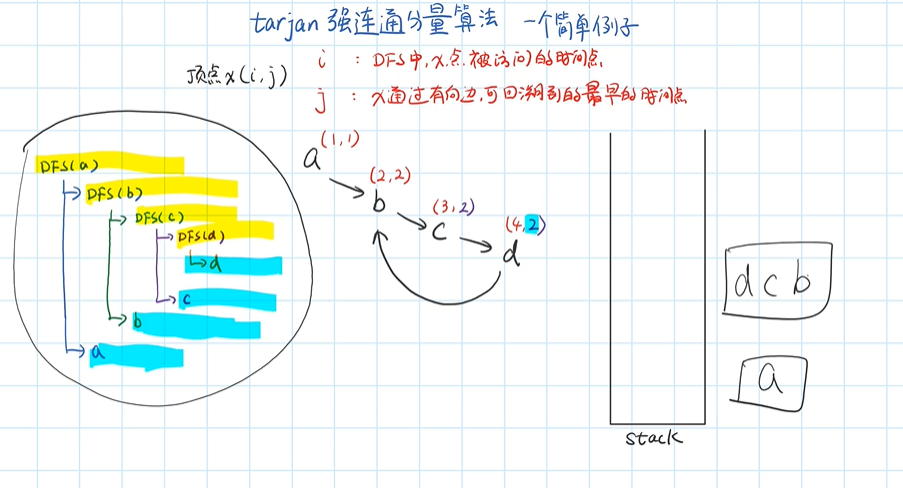 tarjan 强连通分量算法 一个简单例子
顶点x(i,j)
i : DFS中,x点被访问的时间点
j : x通过有向边,可回溯到的最早的时间点
DFS(a)
DFS(b)
DFS(c)
DFS(d)
d
c
b
a
a (1,1)
b (2,2)
c (3,2)
d (4,2)
stack
d c b
a